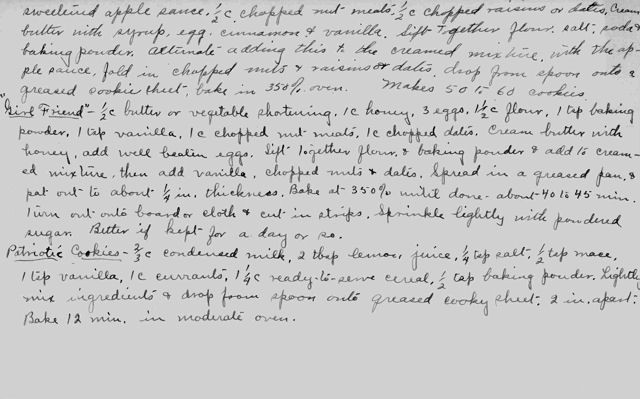 sweetened apple sauce, ½ c. chopped nut meats, ½ c chopped raisins or dates, Cream
butter with syrup, egg, cinnamon & vanilla. Sift together flour, salt, soda &
baking powder. Alternate adding this to the creamed mixture, with the ap-
ple sauce, fold in chopped nuts & raisins or dates, drop from spoon onto a
greased cookie sheet, bake in 350% oven. Makes 50 to 60 cookies.
"Girl Friend" - ½ c butter or vegetable shortening, 1c honey, 3 eggs, 1½ c flour, 1 tsp baking
powder, 1 tsp vanilla, 1c chopped nut meats, 1c chopped dates. Cream butter with
honey, add well beaten eggs. Sift together flour, & baking powder & add to cream-
ed mixture, then add vanilla, chopped nuts & dates. Spread in a greased pan, &
pat out to about ¼ in. thickness. Bake at 350% until done - about - 40 to 45 min.
Turn out onto board or cloth & cut in strips. Sprinkle lightly with powdered
sugar. Better if kept for a day or so.
Patriotic Cookies - ⅔ c condensed milk, 2 tbsp lemon juice, ¼ tsp salt, ½ tsp mace,
1 tsp vanilla, 1c currants, 1¼ c ready-to-serve cereal, ½ tsp baking powder. Lightly
mix ingredients & drop from spoon onto greased cooky sheet, 2 in. apart.
Bake 12 min. in moderate oven.